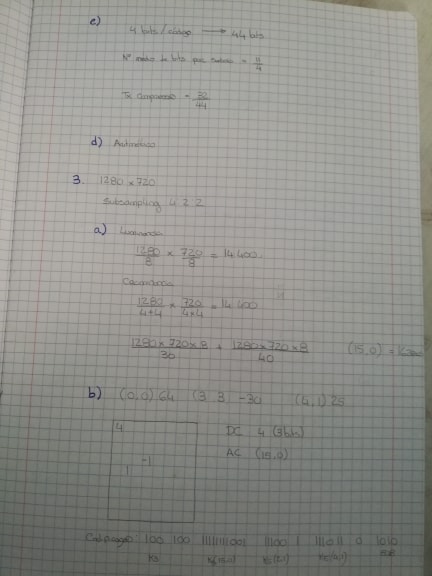 c)
4 bits/código → 44 bits
Nº médio de bits por símbolo = 11/4
Tx compressão = 32/44
d) Aritmético
3. 1280 x 720
Subsampling 4 2 2
a) Luminância
1280/8 x 720/8 = 14 400
Crominância
1280/4+4 x 720/4+4 = 14 400
1280 x 720 x 8/36 + 1280 x 720 x 8/40 (15,0) =
b) (0,0) 64 (3,3) -30 (4,1) 25
4
DC 4 (3bits)
-1
AC (15,0)
1
Codificação: 100 100 11111111001 11100 1 111011 0 1010